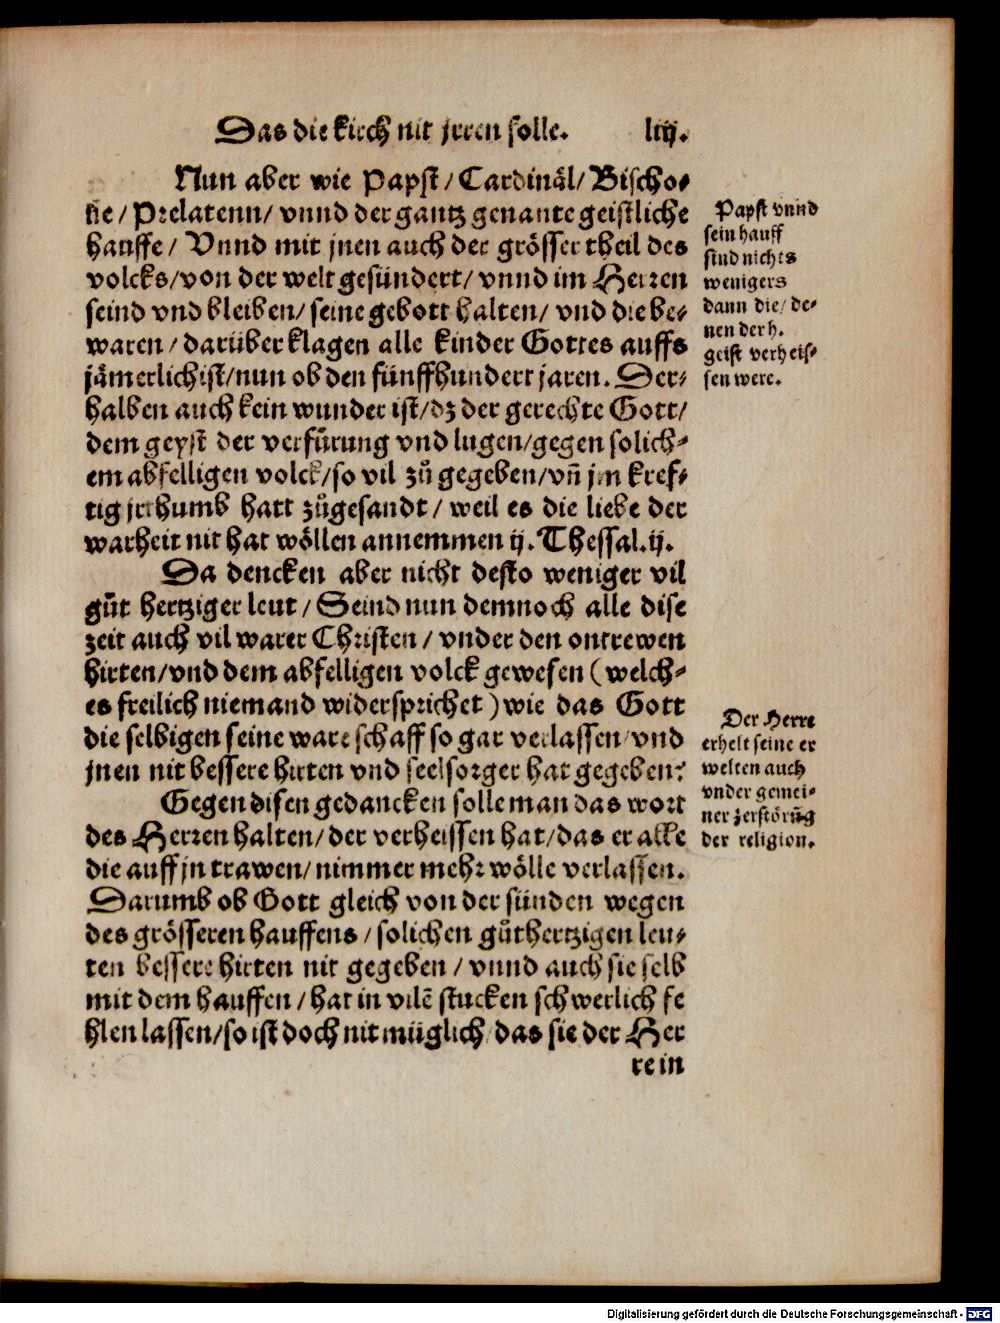 Das die kirch nit jrren solle. liij.
Nun aber wie Papst/ Cardinäl/ Bischo-
fie/ Prelatenn/ vnnd der gantz genante geistliche
hauffe/ Vnnd mit jnen auch der grösser theil des
volcks/ von der welt gesündert/ vnnd im Herren
seind vnd bleiben/ seine gebott halten/ vnd die be-
waren/ darüber klagen alle kinder Gottes auffs
jämerlichist/ nun ob den fünffhundert jaren. Der-
halben auch kein wunder ist/ dz der gerechte Gott/
dem geyst der verfürung vnd lugen/ gegen solich-
em abfelligen volck/ so vil zů gegeben/ vñ jm kref-
tig jrrhumb hatt zůgesandt/ weil es die liebe der
warheit nit hat wöllen annemmen ij. Thessal. ij.
Da dencken aber nicht desto weniger vil
gůt hertziger leut/ Seind nun demnoch alle dise
zeit auch vil warer Christen/ vnder den ontrewen
hirten/ vnd dem abfelligen volck gewesen (welch-
es freilich niemand widersprichet) wie das Gott
die selbigen seine ware schaff so gar verlassen/ vnd
jnen nit bessere hirten vnd seelsorger hat gegeben?
Gegen disen gedancken solle man das wort
des Herren halten/ der verheissen hat/ das er alle
die auff jn trawen/ nimmer mehr wölle verlassen.
Darumb ob Gott gleich von der sünden wegen
des grösseren hauffens/ solichen gůthertzigen leu-
ten bessere hirten nit gegeben/ vnnd auch sie selb
mit dem hauffen/ hat in vilē stucken schwerlich fe
hlen lassen/ so ist doch nit müglich/ das sie der Her
re in
Papst vnnd
sein hauff
sind nichts
wenigers
dann die/ de-
nen der h.
geist verheis-
sen were.
Der Herre
erhelt seine er
welten auch
vnder gemei-
ner zerstörūg
der religion.
Digitalisierung gefördert durch die Deutsche Forschungsgemeinschaft - DFG